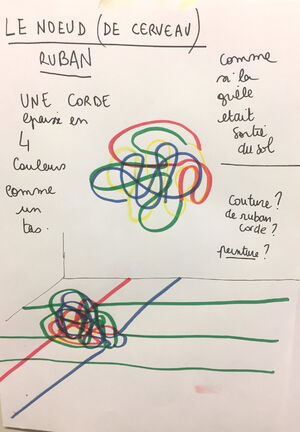 LE NOEUD (DE CERVEAU)
RUBAN
UNE CORDE
épaisse en
4
couleurs
comme
un
tas.
comme
si la
était
sortie
du sol
Couture?
de ruban
corde?
peinture?